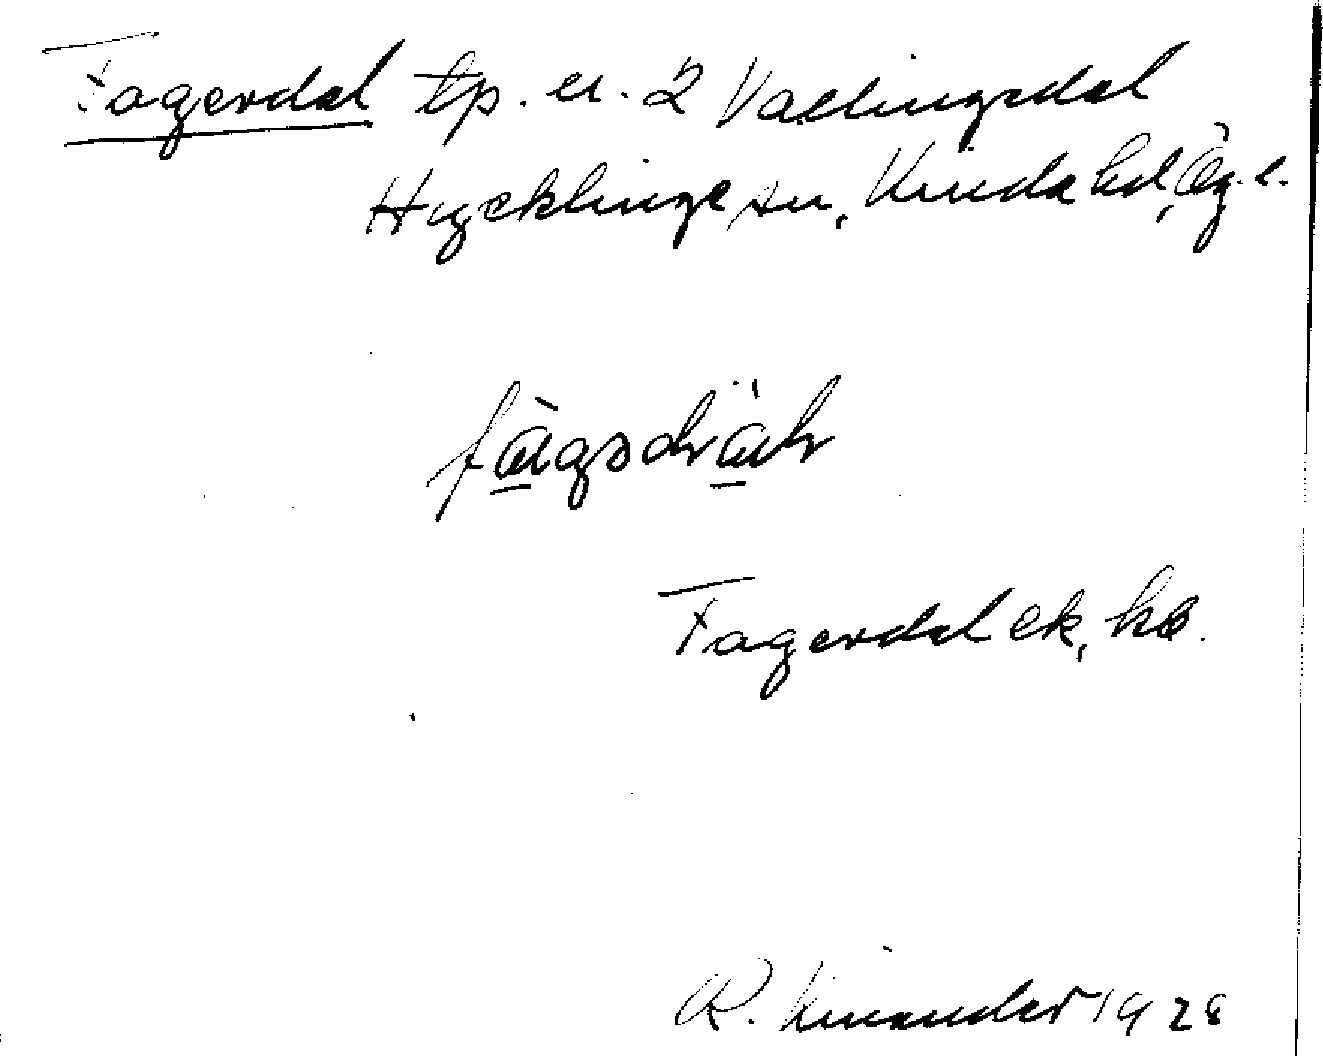 Fagerdal tp. u. 2 Vallingsdal
Hycklinge sn, Kinda hd, Ög. l.
Fagerdal ek, kb.
R. Kinander 1928